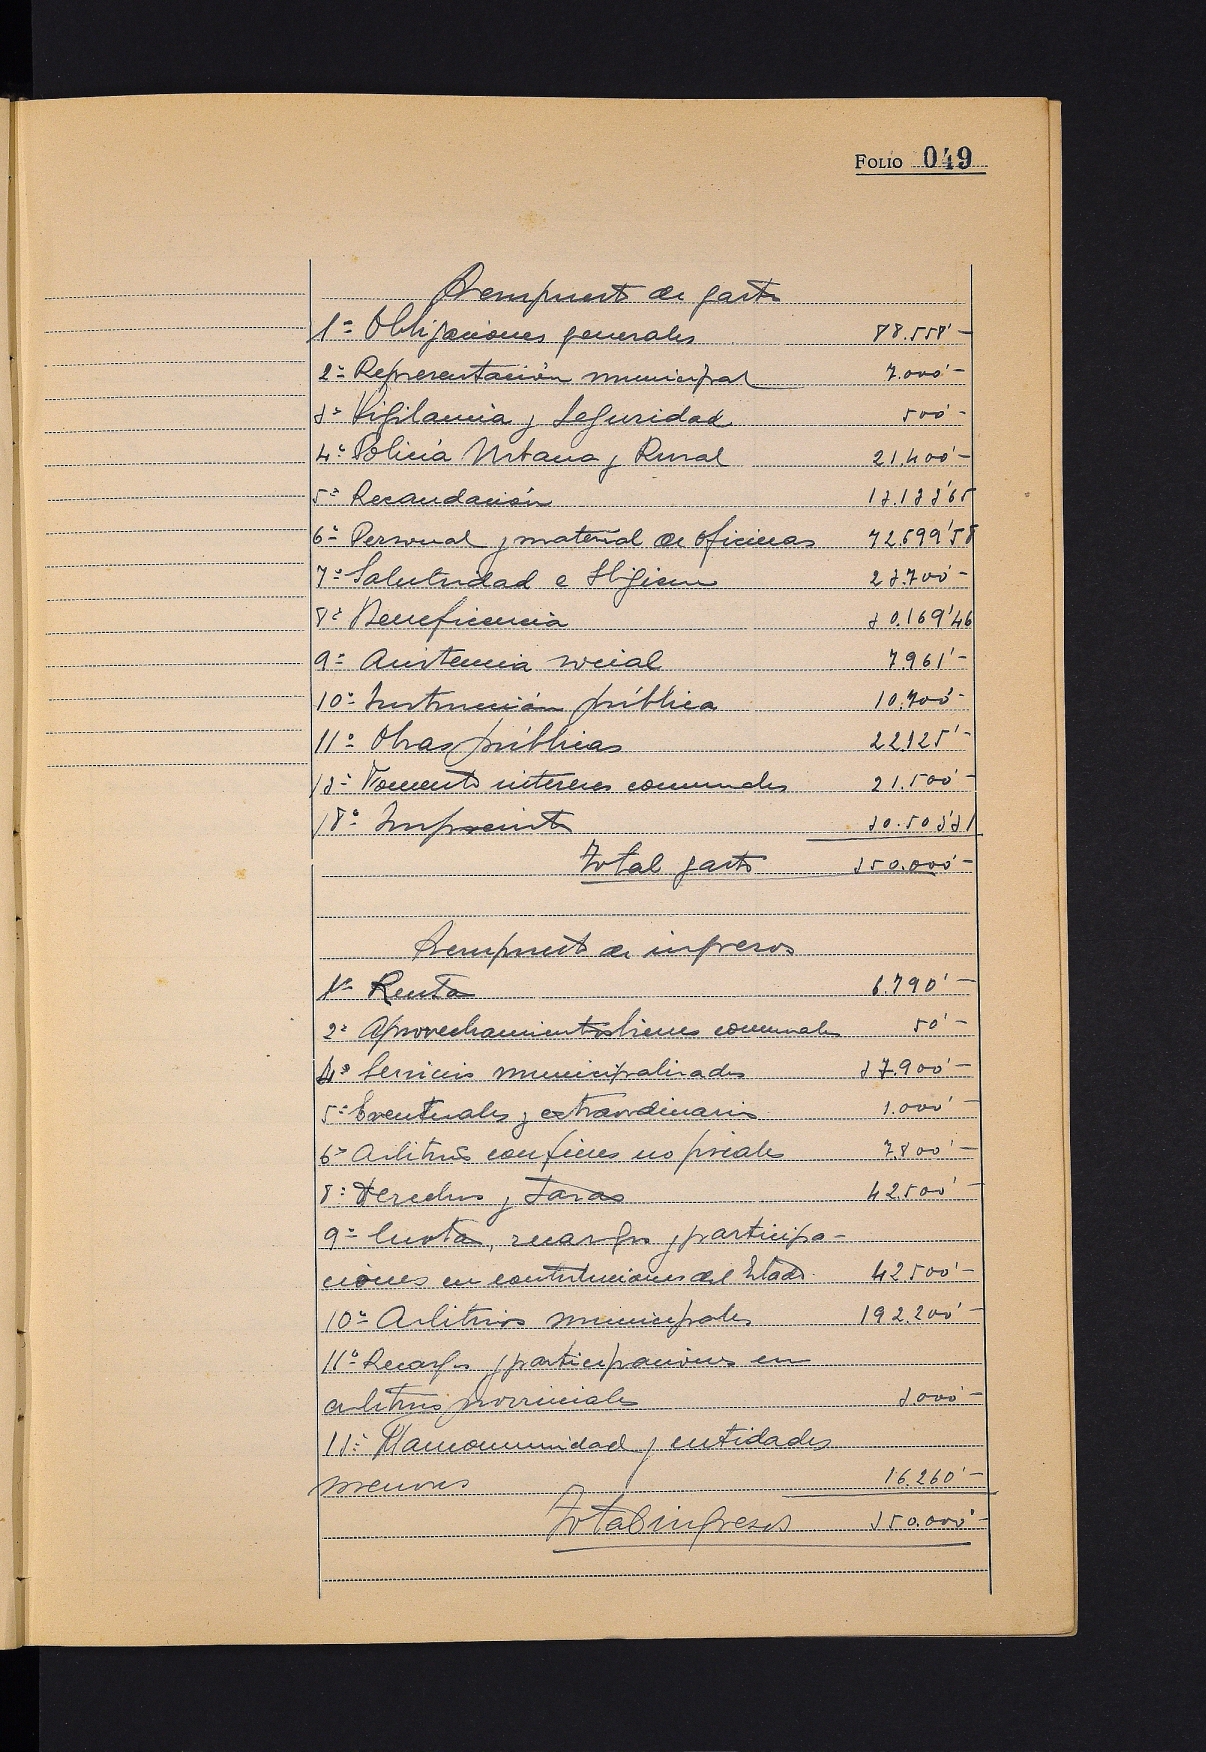 FOLIO 049
Presupuesto de gastos
1º Obligaciones generales 88.558'-
2º Representación municipal 7.000'-
3º Vigilancia y Seguridad 500'-
4º Policia Urbana y Rural 21.400'-
5º Recaudación 13.133'65
6º Personal y material de oficinas 72.699'58
7º Salubridad e Higiene 23.700'-
8º Beneficencia 30.169'46
9º Asistencia social 7.961'-
10º Instrucción pública 10.700'-
11º Obras públicas 22.125'-
13º Fomento intereses comunales 21.500'-
18º Imprevistos 30.503'31
Total gastos 350.000'-
Presupuesto de ingresos
1º Rentas 6.790'-
2º Aprovechamientos bienes comunales 50'-
4º Servicios municipalizados 37.900'-
5º Eventuales y extraordinarios 1.000'-
6º Arbitrios con fines no fiscales 7.800'-
8º Derechos y Tasas 42.500'-
9º Cuotas, recargos y participa-
ciones en contribuciones del Estado 42.500'-
10º Arbitrios municipales 192.200'-
11º Recargos y participaciones en
arbitrios provinciales 3.000'-
13º Mancomunidad y entidades
menores 16.260'-
Total ingresos 350.000'-